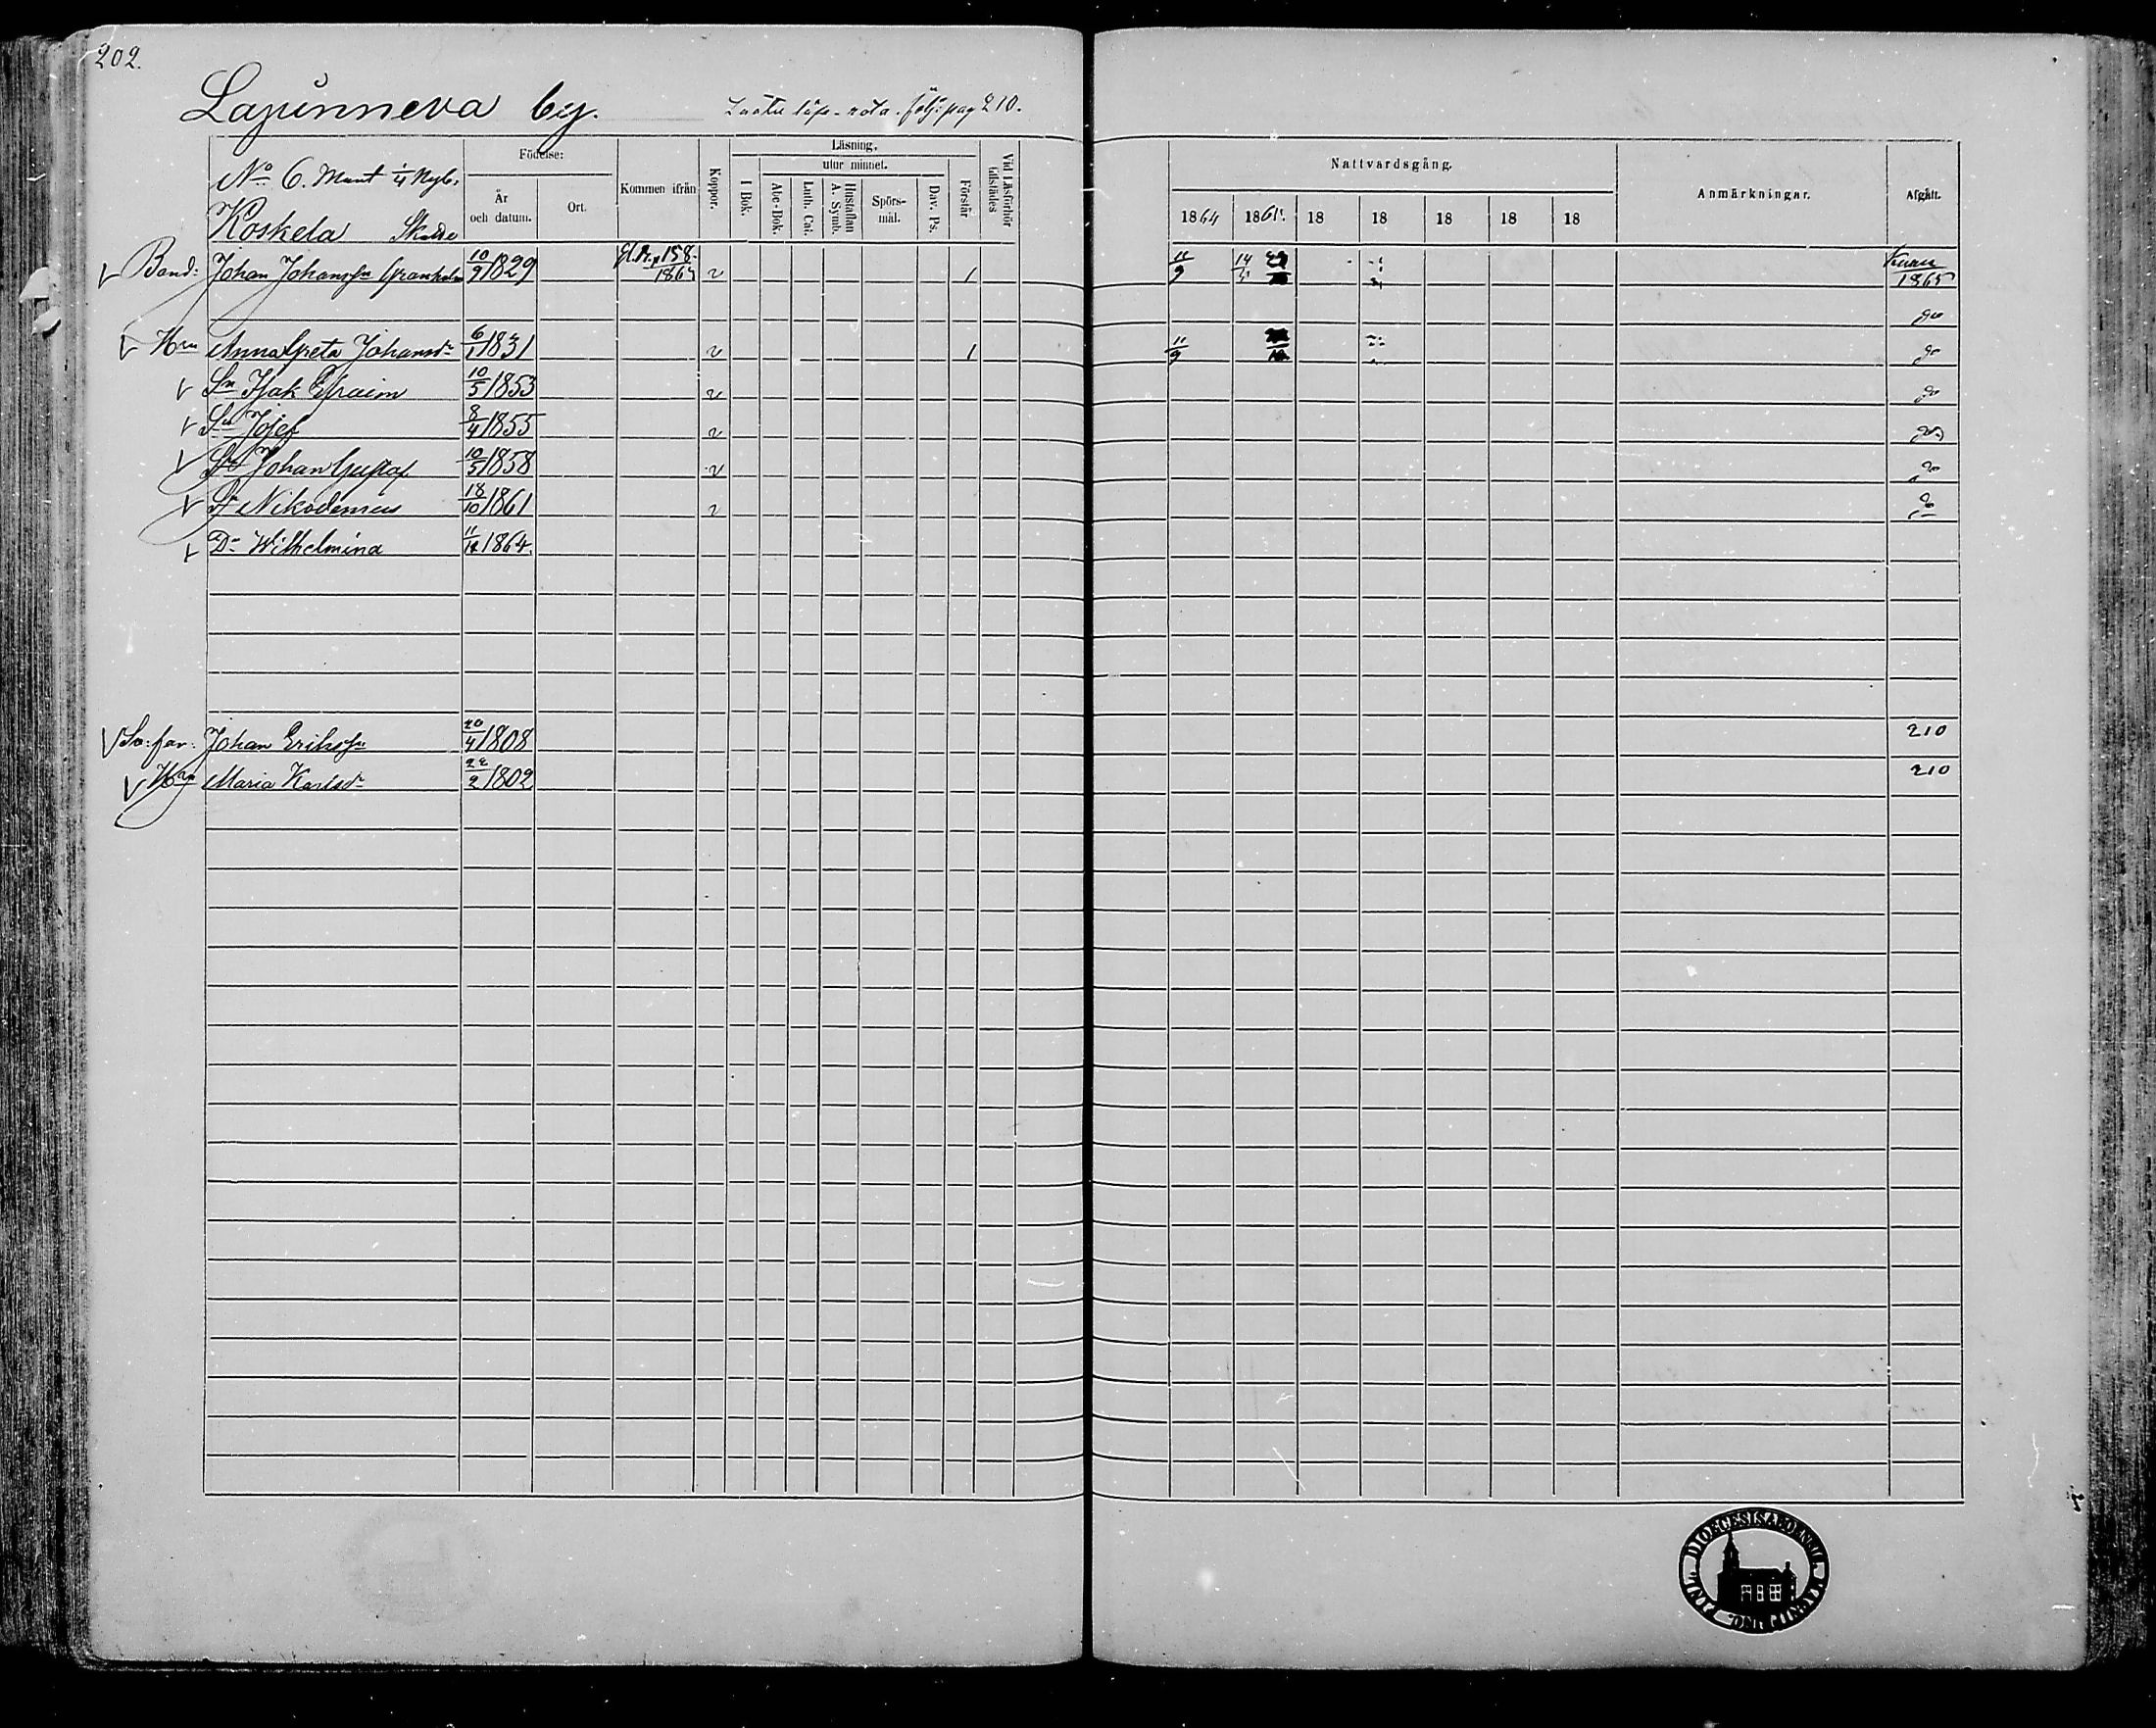 202.
Lapinneva by.
läse-rota. följ: pag 210.
Födelse:
Läsning,
utur minnet.
No 6. Mant 1/4 Nyb.
År och datum.
Ort.
Kommen ifrån
Koppor.
I Bok.
Abc-Bok.
Luth. Cat.
Hustaflan A. Symb.
Spörs-mål.
Dav. Ps.
Förstår
Vid Läsförhör tillstädes
Nattvardsgång.
Anmärkningar.
Afgått.
Koskela Skatte
1864 1865. 18 18 18 18 18
Bond: Johan Johansson Granholm 10/9 1829 p 158. 1865 v 1 11/9 14/5 1865
do
Hru Anna Greta Johansdr 6/1 1831 v 1 11/9 do
Sn Isak Efraim 10/5 1853 v do
Sn Josef 8/4 1855 v do
Sn Johan Gustaf 10/5 1858 v do
Sn Nikodemus 18/10 1861 v do
Dr Wilhelmina 11/12 1864.
Sv: far: Johan Eriksson 20/4 1808 210
Hru Maria Karlsdr 22/2 1802 210
DIOECESIS ABOENSIS